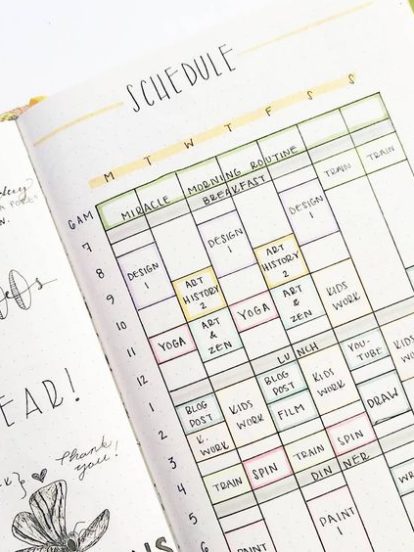 SCHEDULE
M T W T F S S
6AM
MIRACLE MORNING ROUTINE
BREAKFAST
TRAIN TRAIN
7
DESIGN 1
DESIGN 1
8
DESIGN 1
ART HISTORY 2
9
ART HISTORY 2
KIDS WORK
10
YOGA
ART & ZEN
11
YOGA
ART & ZEN
LUNCH
YOU-TUBE
KIDS WORK
12
BLOG POST
KIDS WORK
1
BLOG POST
KIDS WORK
FILM
DRAW
2
K. WORK
SPIN
3
TRAIN
SPIN
TRAIN
DINNER
4
PAINT 1
WR
5
6
PAINT
EAR!
Thank you!